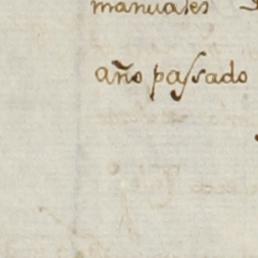 manuales
año passado